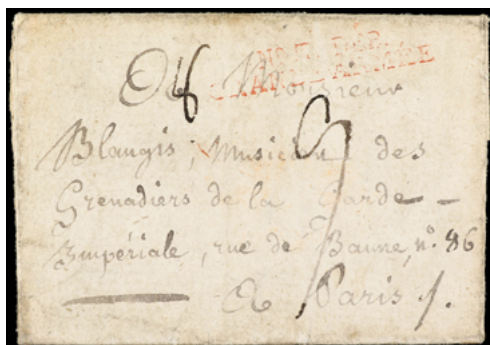 GRANDE ARMÉE
A Monsieur
Blangis, Musicien des
Grenadiers de la Garde
Impériale, rue de Baune, n.º 86
A Paris